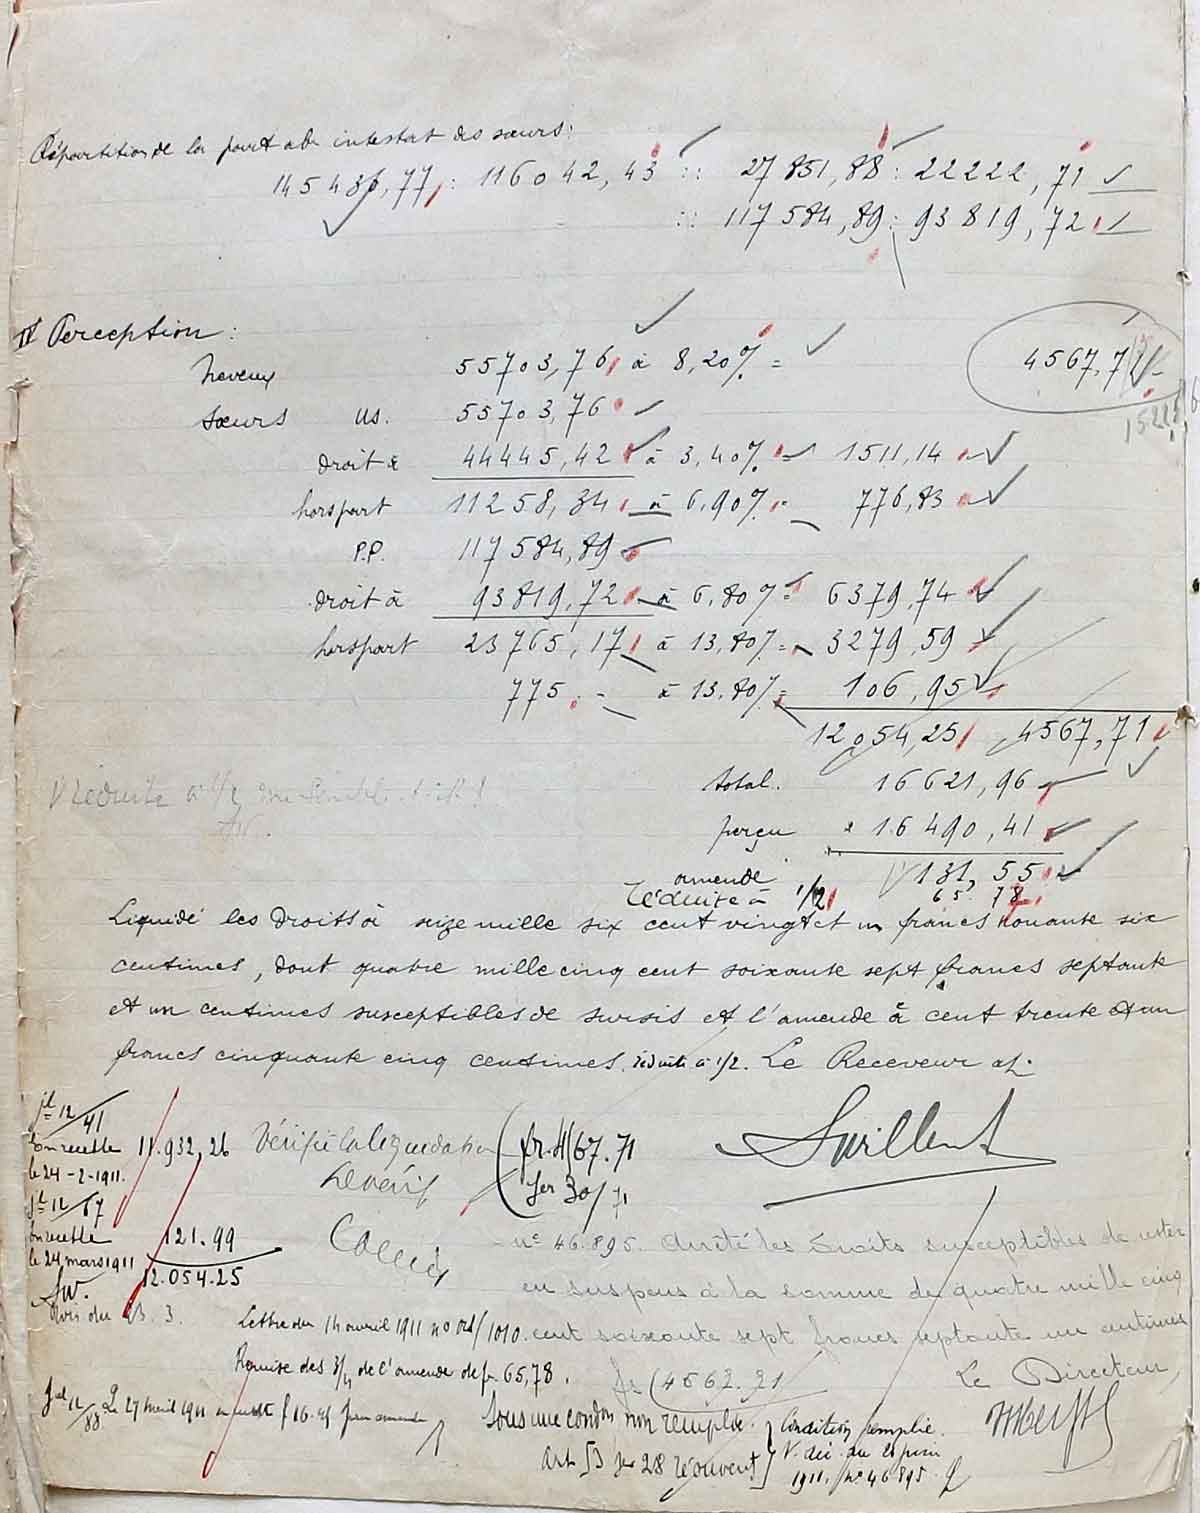 Répartition de la part ab intestat des sœurs:
145436,77 : 116042,43 :: 27851,88 : 22222,71
:: 117584,89 : 93819,72
II Perception :
Neveux 55703,76 à 8,20% = 4567,71
Sœurs us. 55703,76
droit à 44445,42 à 3,40% = 1511,14
horspart 11258,34 à 6,90% = 776,83
P.P. 117584,89
droit à 93819,72 à 6,80% = 6379,74
horspart 23765,17 à 13,80% = 3279,59
775,- à 13,80% = 106,95
12054,25 4567,71
total. 16621,96
perçu 16490,41
131,55
amende réduite à 1/2 65.78
Liquidé les droits à seize mille six cent vingt et un francs nonante six
centimes, dont quatre mille cinq cent soixante sept francs septante
et un centimes susceptibles de sursis et l'amende à cent trente et un
francs cinquante cinq centimes. réduite à 1/2. Le Receveur
12/41
En recette 11.932,26
le 24-2-1911.
Vérifié la liquidation fr. 4567.71
12/67
En recette 121.99
le 24 mars 1911
12.054.25
n° 46.895. Arrêté les droits susceptibles de rester
en suspens à la somme de quatre mille cinq
cent soixante sept francs septante un centimes
Lettre du 14 avril 1911 n° 1010
Remise des 3/4 de l'amende de fr. 65,78.
fr (4567.71
Le Directeur,
12/88 Le 27 avril 1911 16.45 pour amende
Sous une condon non remplie. Condition remplie.
Art 53 28 réouvert
1911. n° 46895